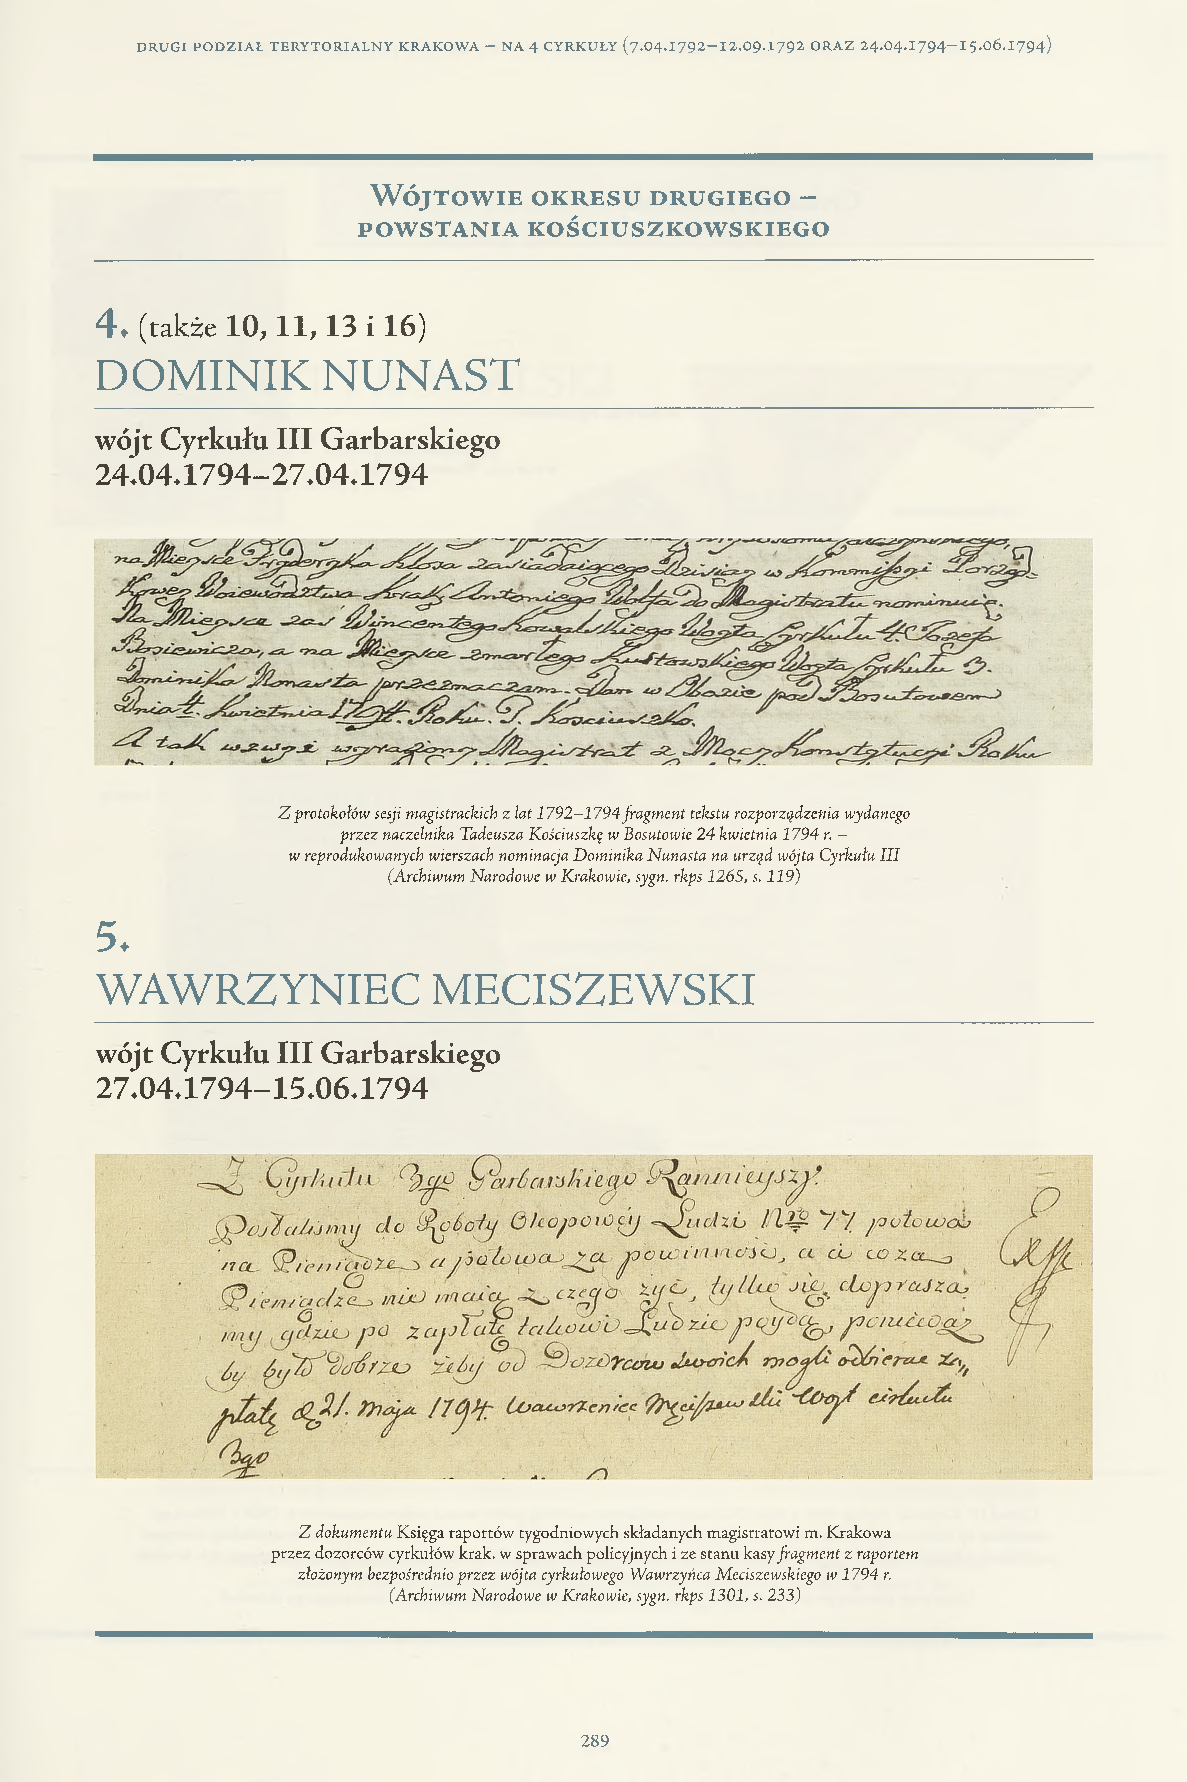 DRUGI PODZIAŁ TERYTORIALNY KRAKOWA – NA 4 CYRKUŁY (7.04.1792–12.09.1792 ORAZ 24.04.1794–15.06.1794)
Wójtowie okresu drugiego –
powstania kościuszkowskiego
4. (także 10, 11, 13 i 16)
DOMINIK NUNAST
wójt Cyrkułu III Garbarskiego
24.04.1794–27.04.1794
na Miejsce Fryderyka Klosa zasiadaiącego Dzisiay w Kommissyi Porząd-
kowey Woiewództwa Krak. Antoniego Wolfa do Magistratu nominuię.
Na Miejsce zaś Wincentego Kowalskiego Woyta Cyrkułu 4. Józefa
a na Mieysce zmarłego Woyta Cyrkułu 3.
Dominika Nonasta przeznaczam. Dan w Obozie pod Bosutowem
Dnia Kwietnia 1794. Roku. T. Kosciuszko.
A tak wyrażony Magistrat z Mocy Konstytucyi Roku
Z protokołów sesji magistrackich z lat 1792–1794 fragment tekstu rozporządzenia wydanego
przez naczelnika Tadeusza Kościuszkę w Bosutowie 24 kwietnia 1794 r. –
w reprodukowanych wierszach nominacja Dominika Nunasta na urząd wójta Cyrkułu III
(Archiwum Narodowe w Krakowie, sygn. rkps 1265, s. 119)
5.
WAWRZYNIEC MECISZEWSKI
wójt Cyrkułu III Garbarskiego
27.04.1794–15.06.1794
Z Cyrkułu 3go Garbarskiego Rannieyszy.
Posłalismy do Roboty Okopowey Ludzi Nro 77 połowa
na Pieniądze a połowa za powinność, a ci co za
Pieniądze nie maią z czego żyć, tylko się doprasza,
my gdzie po zapłatę takowi Ludzie poydą, ponieważ
by było dobrze żeby od Dozorców swoich mogli odbierac za,,
płatę d. 21. Maja 1794. Wawrzeniec Męciszewski Woyt cirkułu
3go
Z dokumentu Księga raportów tygodniowych składanych magistratowi m. Krakowa
przez dozorców cyrkułów krak. w sprawach policyjnych i ze stanu kasy fragment z raportem
złożonym bezpośrednio przez wójta cyrkułowego Wawrzyńca Meciszewskiego w 1794 r.
(Archiwum Narodowe w Krakowie, sygn. rkps 1301, s. 233)
289